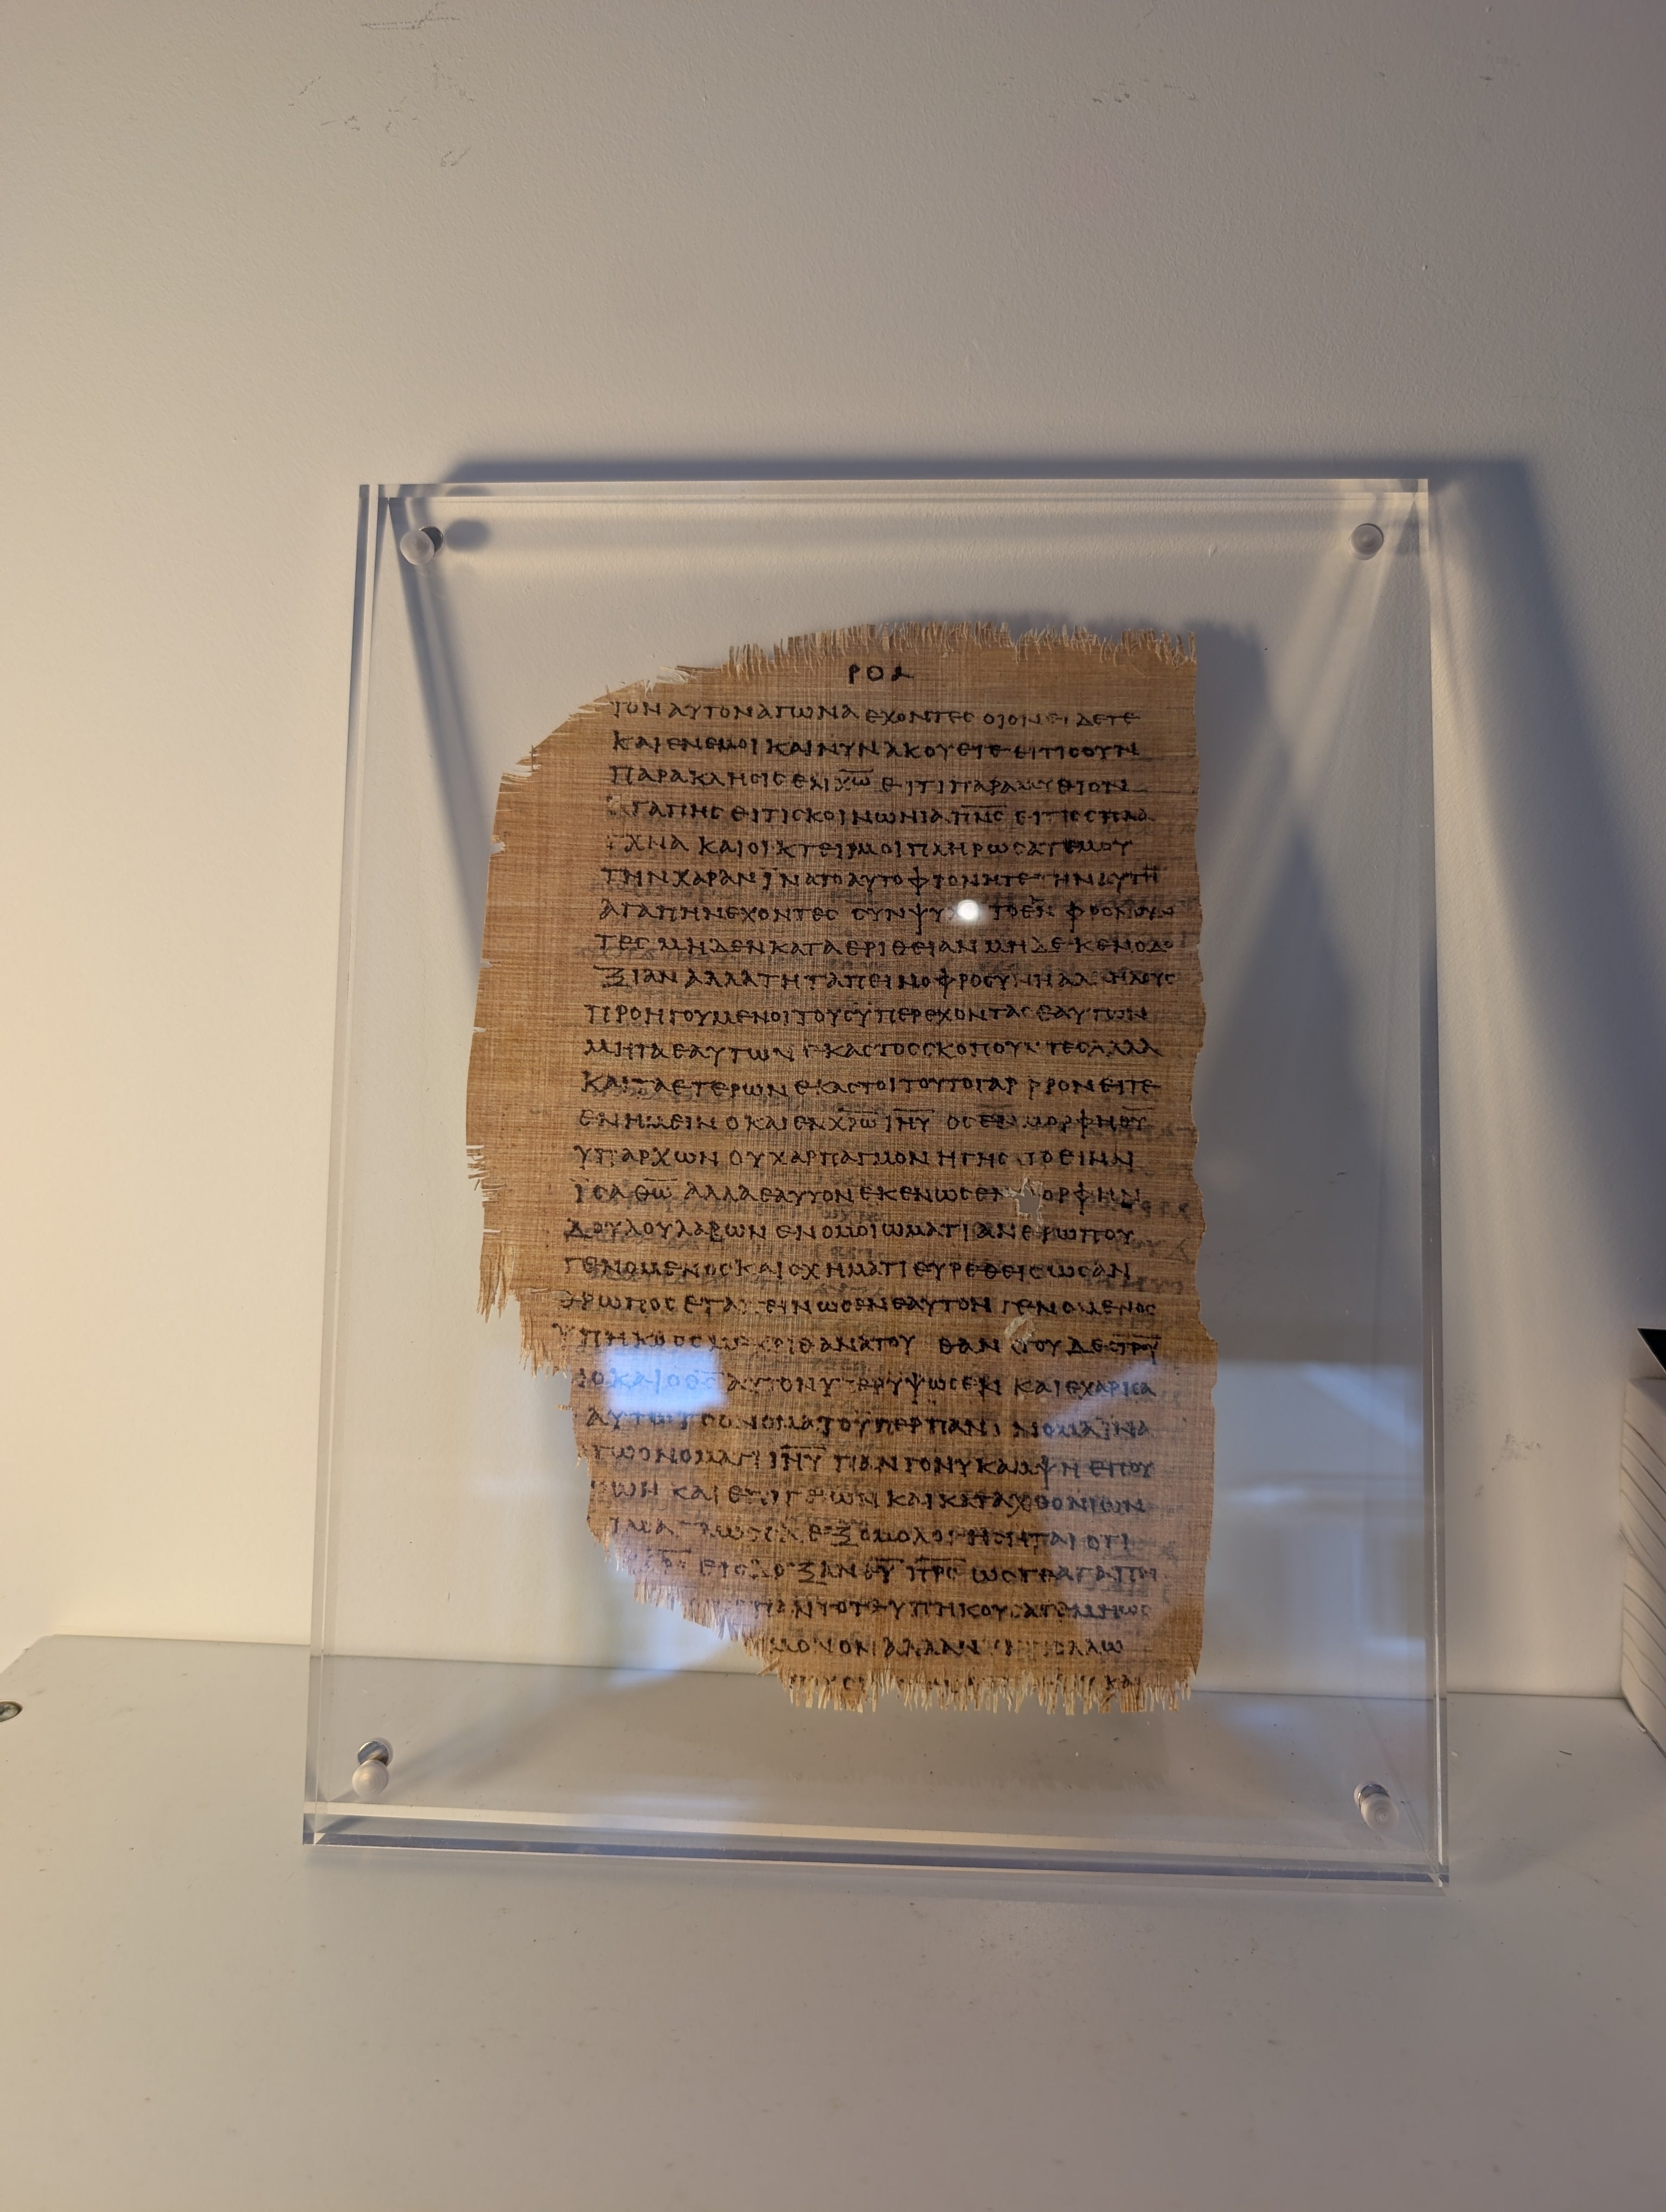 ΡΟΑ
ΤΟΝ ΑΥΤΟΝ ΑΓΩΝΑ ΕΧΟΝΤΕΣ ΟΙΟΝ ΕΙΔΕΤΕ
ΚΑΙ ΕΝ ΕΜΟΙ ΚΑΙ ΝΥΝ ΑΚΟΥΕΤΕ ΕΙ ΤΙΣ ΟΥΝ
ΠΑΡΑΚΛΗΣΙΣ ΕΝ Χ̅Ω̅ ΕΙ ΤΙ ΠΑΡΑΜΥΘΙΟΝ
ΑΓΑΠΗΣ ΕΙ ΤΙΣ ΚΟΙΝΩΝΙΑ Π̅Ν̅Σ̅ ΕΙ ΤΙΣ ΣΠΛΑ
ΓΧΝΑ ΚΑΙ ΟΙΚΤΕΙΡΜΟΙ ΠΛΗΡΩΣΑΤΕ ΜΟΥ
ΤΗΝ ΧΑΡΑΝ ΙΝΑ ΤΟ ΑΥΤΟ ΦΡΟΝΗΤΕ ΤΗΝ ΑΥΤΗ
ΑΓΑΠΗΝ ΕΧΟΝΤΕΣ ΤΟ ΕΝ ΦΡΟΝΟΥΝ
ΤΕΣ ΜΗΔΕΝ ΚΑΤΑ ΕΡΙΘΕΙΑΝ ΜΗΔΕ ΚΕΝΟΔΟ
ΞΙΑΝ ΑΛΛΑ ΤΗ ΤΑΠΕΙΝΟΦΡΟΣΥΝΗ ΑΛΛΗΛΟΥΣ
ΠΡΟΗΓΟΥΜΕΝΟΙ ΤΟΥΣ ΥΠΕΡΕΧΟΝΤΑΣ ΕΑΥΤΩΝ
ΜΗ ΤΑ ΕΑΥΤΩΝ ΕΚΑΣΤΟΣ ΣΚΟΠΟΥΝΤΕΣ ΑΛΛΑ
ΚΑΙ ΤΑ ΕΤΕΡΩΝ ΕΚΑΣΤΟΙ ΤΟΥΤΟ ΓΑΡ ΦΡΟΝΕΙΤΕ
ΕΝ ΗΜΕΙΝ Ο ΚΑΙ ΕΝ Χ̅Ρ̅Ω̅ Ι̅Η̅Υ̅ ΟΣ ΕΝ ΜΟΡΦΗ Θ̅Υ̅
ΥΠΑΡΧΩΝ ΟΥΧ ΑΡΠΑΓΜΟΝ ΗΓΗΣ ΤΟ ΕΙΝΑΙ
ΙΣΑ Θ̅Ω̅ ΑΛΛΑ ΕΑΥΤΟΝ ΕΚΕΝΩΣΕΝ ΜΟΡΦΗΝ
ΔΟΥΛΟΥ ΛΑΒΩΝ ΕΝ ΟΜΟΙΩΜΑΤΙ ΑΝΘΡΩΠΟΥ
ΓΕΝΟΜΕΝΟΣ ΚΑΙ ΣΧΗΜΑΤΙ ΕΥΡΕΘΕΙΣ ΩΣ ΑΝ
ΘΡΩΠΟΣ ΕΤΑΠΕΙΝΩΣΕΝ ΕΑΥΤΟΝ ΓΕΝΟΜΕΝΟΣ
ΥΠΗΚΟΟΣ ΜΕΧΡΙ ΘΑΝΑΤΟΥ ΘΑΝΑΤΟΥ ΔΕ Σ̅Τ̅Ρ̅Υ̅
ΔΙΟ ΚΑΙ Ο Θ̅Σ̅ ΑΥΤΟΝ ΥΠΕΡΥΨΩΣΕΝ ΚΑΙ ΕΧΑΡΙΣΑ
ΑΥΤΩ ΤΟ ΟΝΟΜΑ ΤΟ ΥΠΕΡ ΠΑΝ ΟΝΟΜΑ ΙΝΑ
ΤΩ ΟΝΟΜΑΤΙ Ι̅Η̅Υ̅ ΠΑΝ ΓΟΝΥ ΚΑΜΨΗ ΕΠΟΥ
ΚΑΙ ΕΠΙΓΕΙΩΝ ΚΑΙ ΚΑΤΑΧΘΟΝΙΩΝ
ΕΞΟΜΟΛΟΓΗΣΗΤΑΙ ΟΤΙ
ΕΙΣ ΔΟΞΑΝ Θ̅Υ̅ Π̅Ρ̅Σ̅ ΩΣΤΕ ΑΓΑΠΗ
ΠΑΝΤΟΤΕ ΥΠΗΚΟΥΣΑΤΕ ΜΗ ΩΣ
ΜΟΝΟΝ ΑΛΛΑ ΝΥΝ ΠΟΛΛΩ